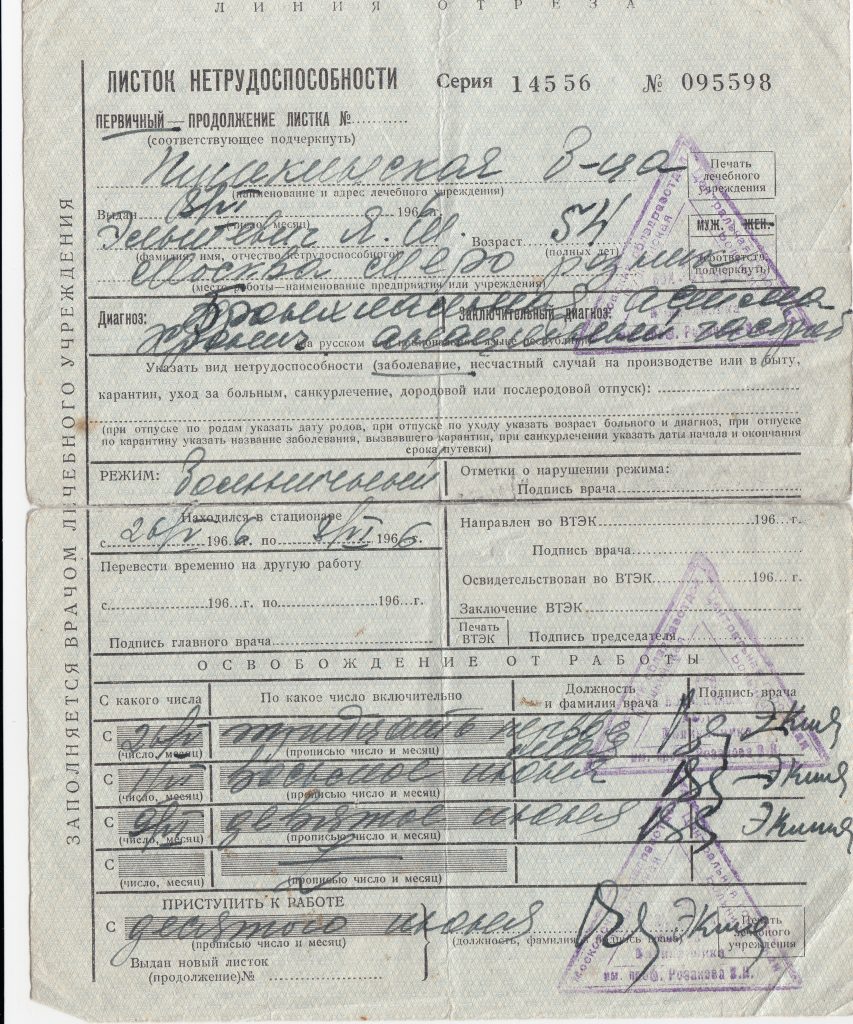 ЛИНИЯ ОТРЕЗА
ЛИСТОК НЕТРУДОСПОСОБНОСТИ Серия 14556 № 095598
ПЕРВИЧНЫЙ — ПРОДОЛЖЕНИЕ ЛИСТКА №
(соответствующее подчеркнуть)
Пушкинская б-ца
Печать лечебного учреждения
(наименование и адрес лечебного учреждения)
Выдан 8/VI 1966 г.
(число, месяц)
Я. Ш. Возраст 54
МУЖ. ЖЕН.
(фамилия, имя, отчество нетрудоспособного) (полных лет)
(соответств. подчеркнуть)
Москва
(место работы—наименование предприятия или учреждения)
Диагноз: Бронхиальная астма Заключительный диагноз:
хронич. анацидный гастрит
на русском
Указать вид нетрудоспособности (заболевание, несчастный случай на производстве или в быту,
карантин, уход за больным, санкурлечение, дородовой или послеродовой отпуск):
(при отпуске по родам указать дату родов, при отпуске по уходу указать возраст больного и диагноз, при отпуске
по карантину указать название заболевания, вызвавшего карантин, при санкурлечении указать даты начала и окончания
срока путевки)
РЕЖИМ: Больничный Отметки о нарушении режима:
Подпись врача
Находился в стационаре
с 20/V 1966 по 8/VI 1966
Направлен во ВТЭК 196 г.
Подпись врача
Перевести временно на другую работу
с 196 г. по 196 г.
Освидетельствован во ВТЭК 196 г.
Заключение ВТЭК
Печать ВТЭК
Подпись председателя
Подпись главного врача
ЗАПОЛНЯЕТСЯ ВРАЧОМ ЛЕЧЕБНОГО УЧРЕЖДЕНИЯ
ОСВОБОЖДЕНИЕ ОТ РАБОТЫ
С какого числа По какое число включительно Должность и фамилия врача Подпись врача
С 20/V тридцать первое мая
(число, месяц) (прописью число и месяц)
С 1/VI восьмое июня
(число, месяц) (прописью число и месяц)
С 9/VI девятое июня
(число, месяц) (прописью число и месяц)
С
(число, месяц) (прописью число и месяц)
ПРИСТУПИТЬ К РАБОТЕ
С десятого июня
(прописью число и месяц)
(должность, фамилия и подпись врача)
Печать лечебного учреждения
Выдан новый листок
(продолжение) №
им. проф. Розанова В.Н.